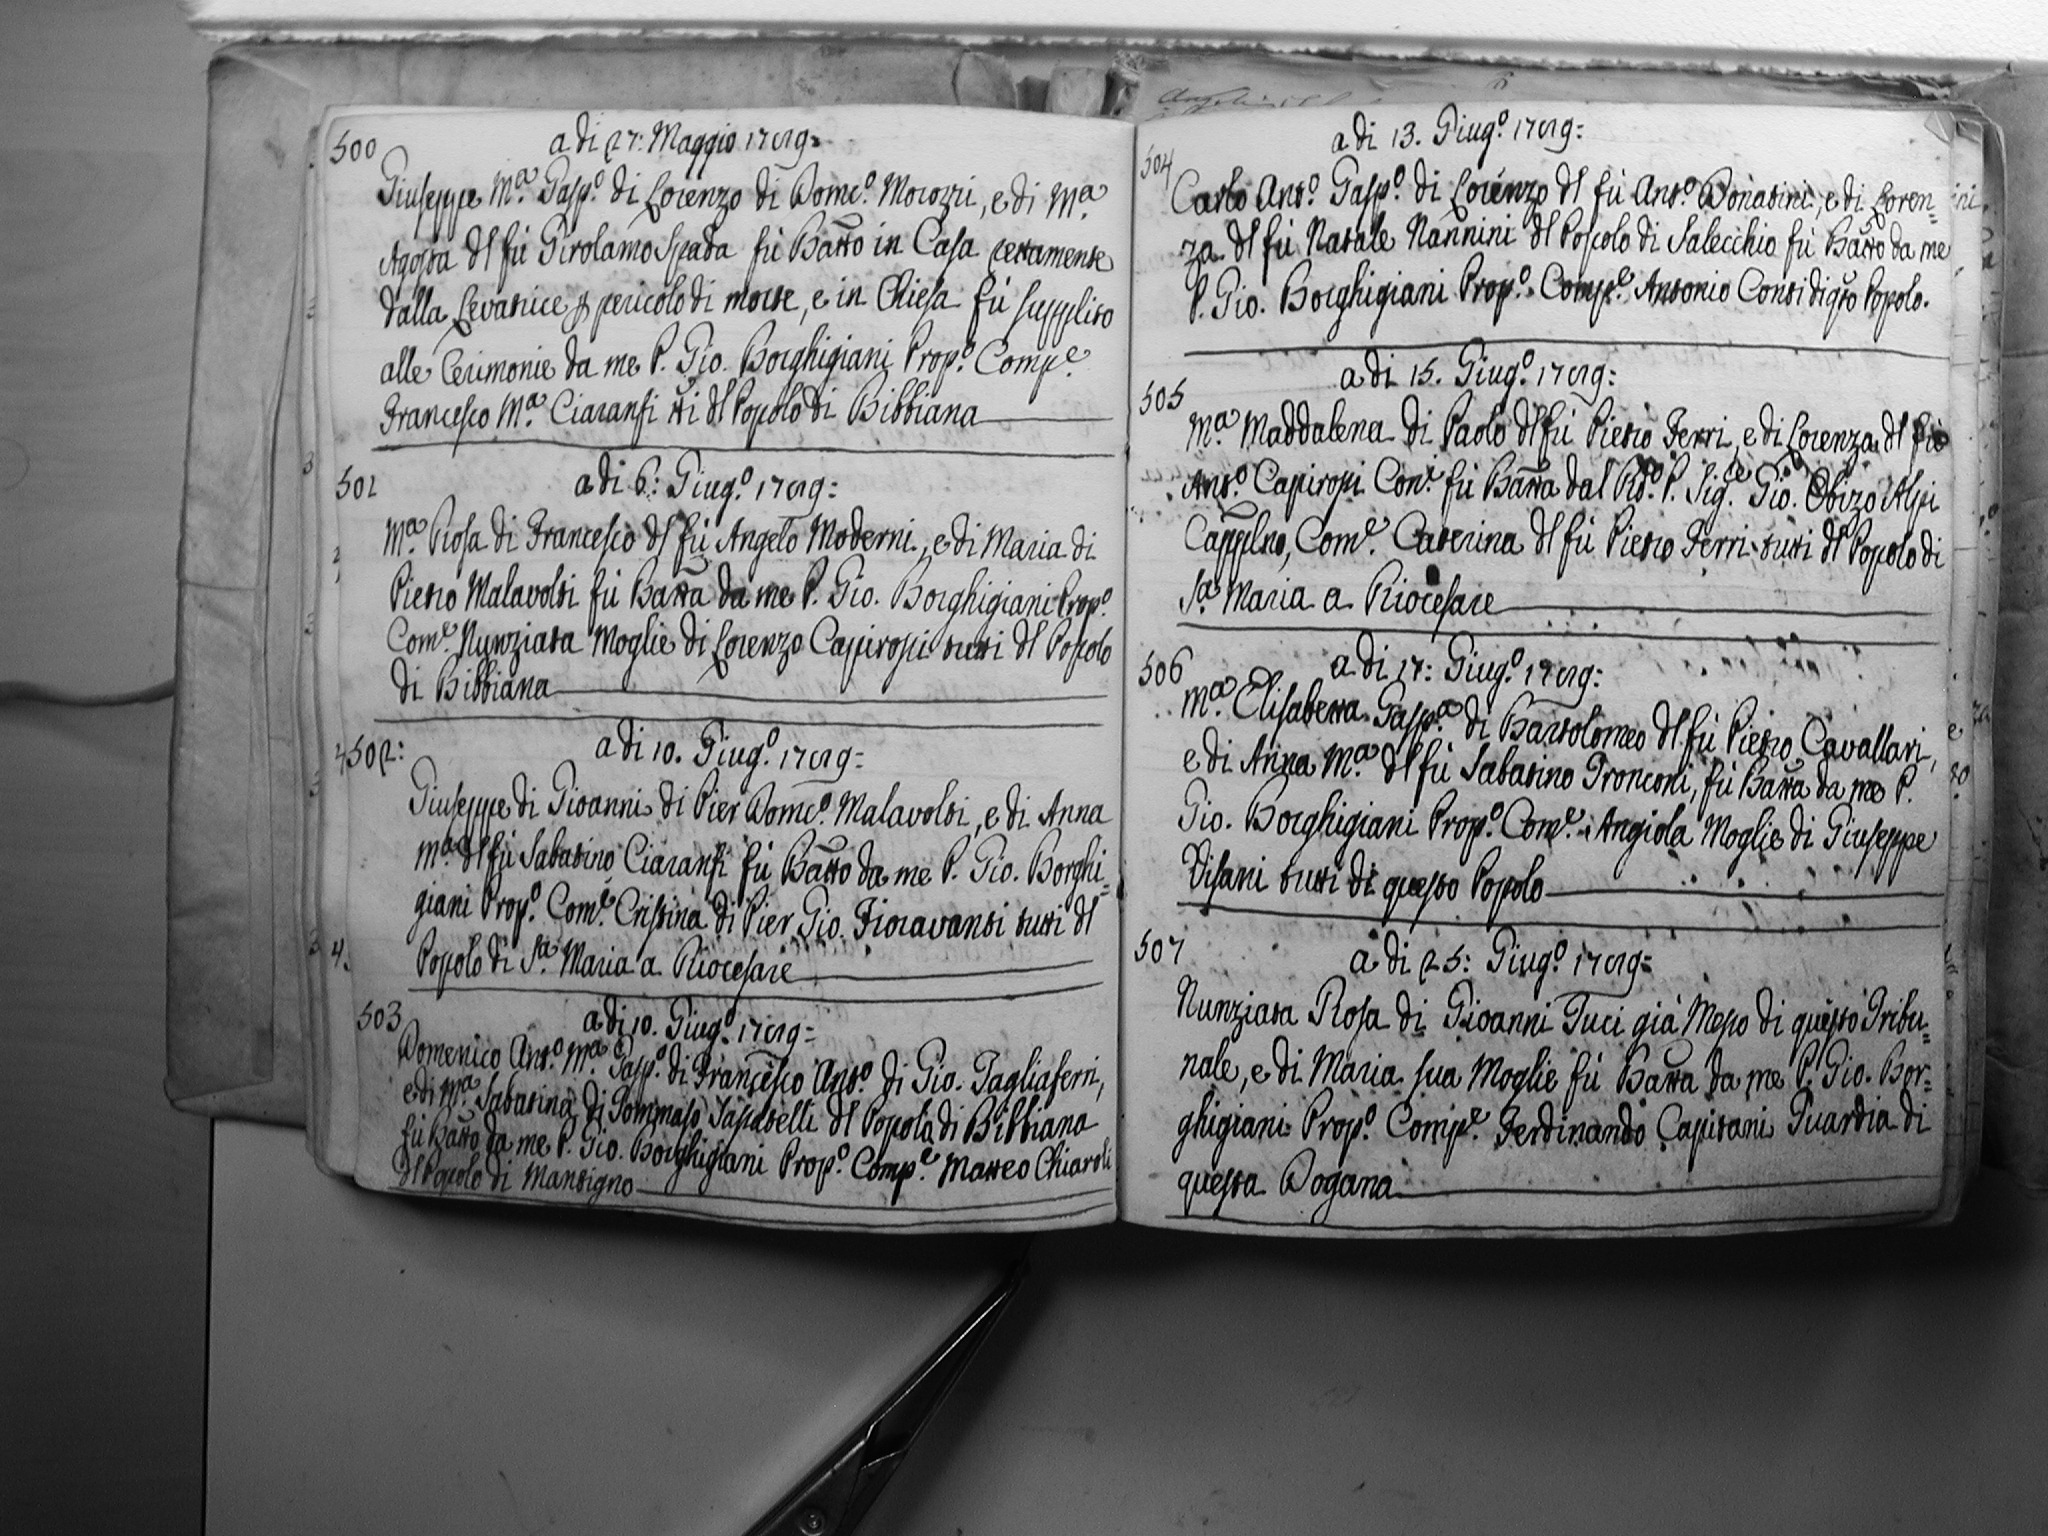 500 a di 27: Maggio 1729=
Giuseppe M.ª Gasp.º di Lorenzo di Dom.º Morozzi, e di M.ª
Agosta dl fù Girolamo Spada fù Batto in Casa rettamente
dalla Levatrice p pericolo di morte, e in Chiesa fù supplito
alle Cerimonie da me P. Gio. Borghigiani Prop.º Comp.e
Francesco M.ª Ciaranfi tti dl Popolo di Bibbiana
501 a di 6: Giug.º 1729=
M.ª Rosa di Francesco dl fù Angelo Moderni, e di Maria di
Pietro Malavolti fù Batta da me P. Gio. Borghigiani Prop.º
Com.e Nunziata Moglie di Lorenzo Capirossi tutti dl Popolo
di Bibbiana
502: a di 10. Giug.º 1729=
Giuseppe di Giovanni di Pier Dom.º Malavolti, e di Anna
M.ª dl fù Sabatino Ciaranfi fù Batto da me P. Gio. Borghi=
giani Prop.º Com.e Cristina di Pier Gio. Fioravanti tutti dl
Popolo di S.ª Maria a Riocesare
503 a di 10. Giug.º 1729=
Domenico Ant.º M.ª Gasp.º di Francesco Ant.º di Gio. Tagliaferri,
e di M.ª Sabatina di Tommaso Sapatelli dl Popolo di Bibbiana
fù Batto da me P. Gio. Borghigiani Prop.º Comp.e Matteo Chiaroli
dl Popolo di Mantigno
504 a di 13. Giug.º 1729=
Carlo Ant.º Gasp.º di Lorenzo dl fù Ant.º Donatini, e di Loren=
za dl fù Natale Nannini dl Popolo di Salecchio fù Batto da me
P. Gio. Borghigiani Prop.º Comp.e Antonio Conti di qto Popolo.
505 a di 15. Giug.º 1729=
M.ª Maddalena di Paolo dl fù Pietro Ferri, e di Lorenza dl fù
Ant.º Capirossi Con.i fù Batta dal Rd.º P. Sig.re Gio. Obizo Alpi
Cappllno, Com.e Caterina dl fù Pietro Ferri tutti dl Popolo di
S.ª Maria a Riocesare
506 a di 17: Giug.º 1729=
M.ª Elisabetta Gasp.ª di Bartolomeo dl fù Pietro Cavallari,
e di Anna M.ª dl fù Sabatino Tronconi, fù Batta da me P.
Gio. Borghigiani Prop.º Com.e Angiola Moglie di Giuseppe
Visani tutti di questo Popolo
507 a di 25: Giug.º 1729=
Nunziata Rosa di Giovanni Tuci già Messo di questo Tribu=
nale, e di Maria sua Moglie fù Batta da me P. Gio. Bor=
ghigiani Prop.º Comp.e Ferdinando Capitani Guardia di
questa Dogana